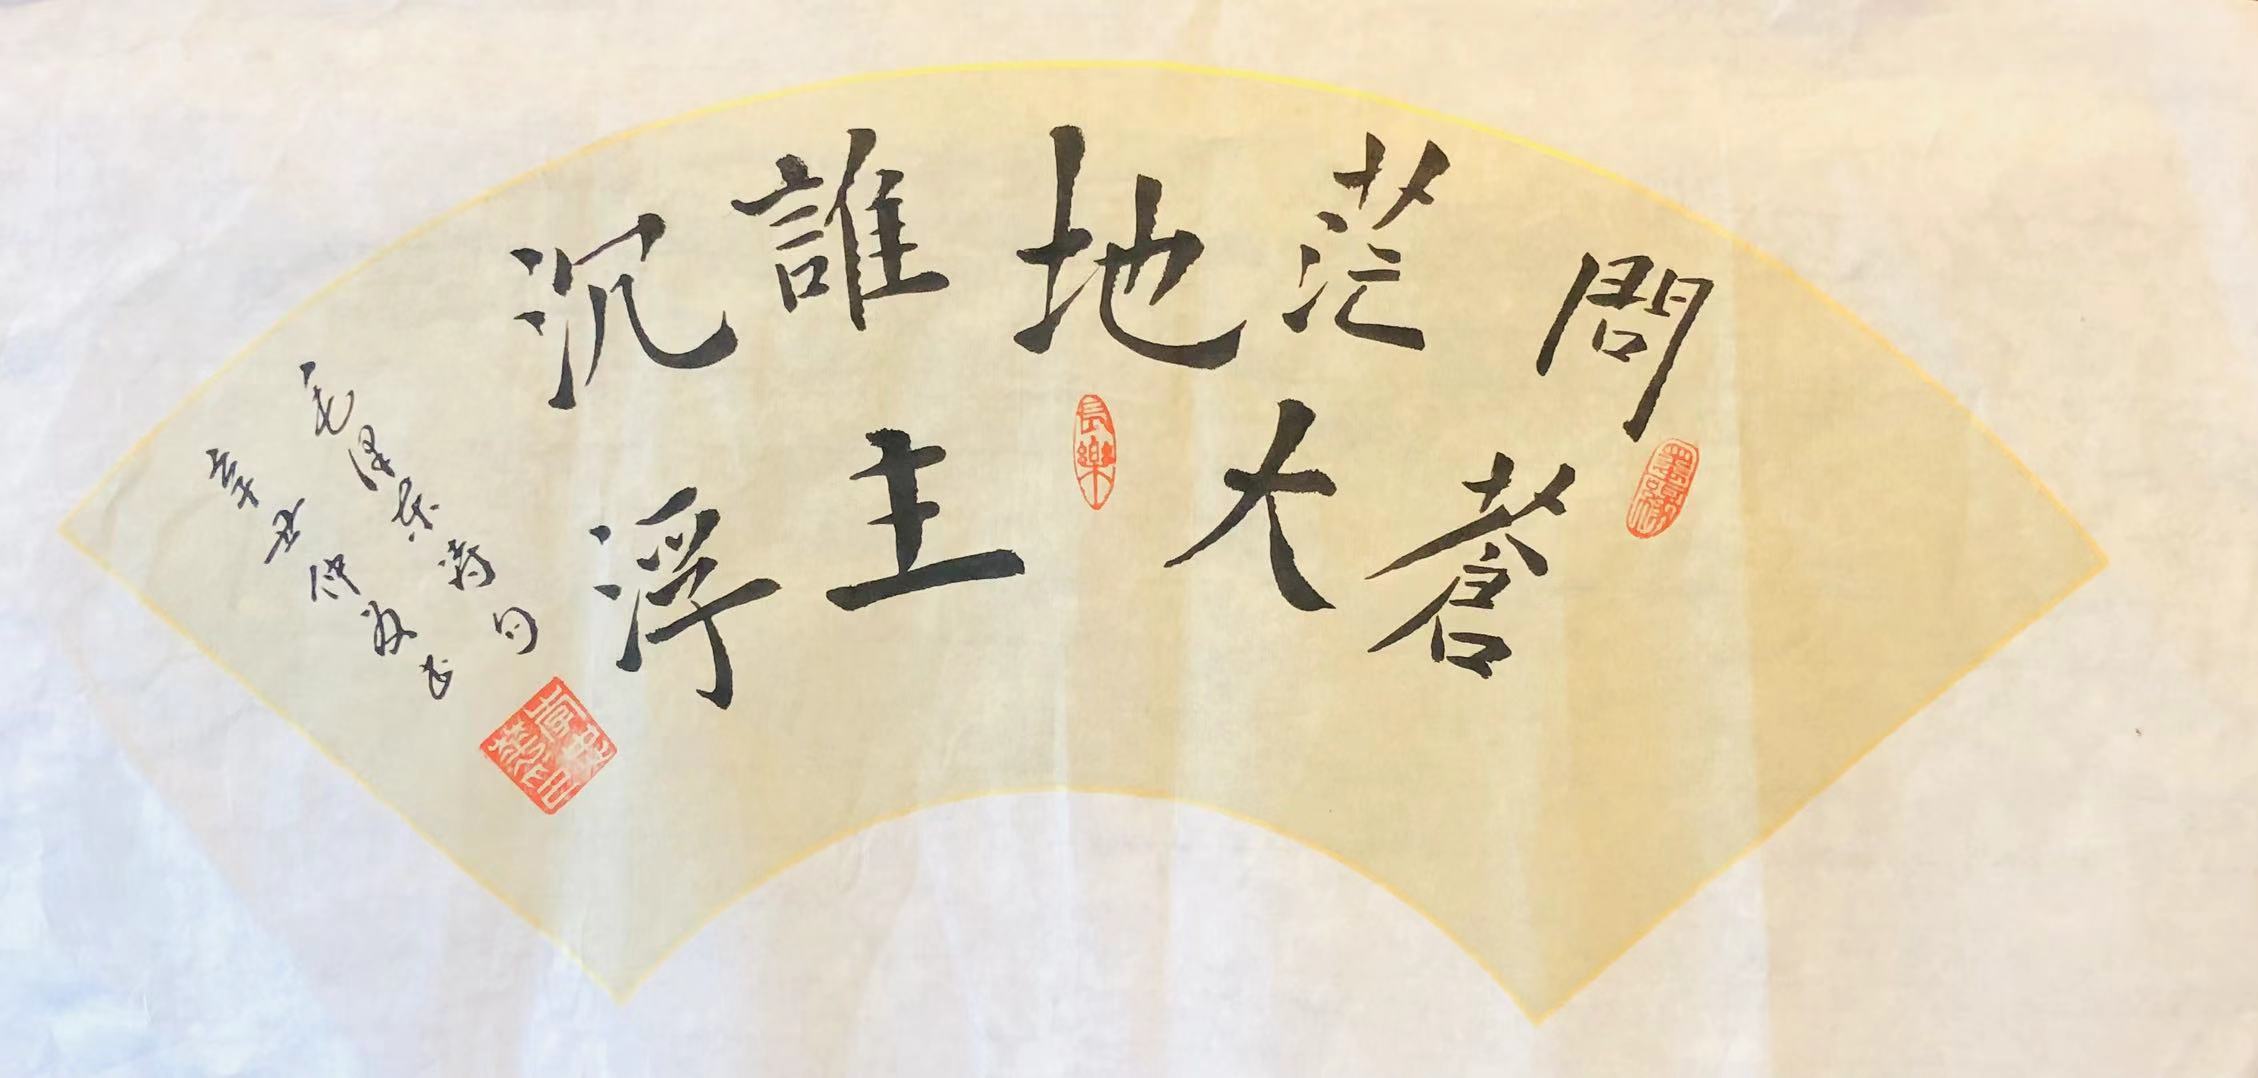 問蒼
茫大
地
誰主
沉浮
毛泽东诗句
辛丑仲书
長樂